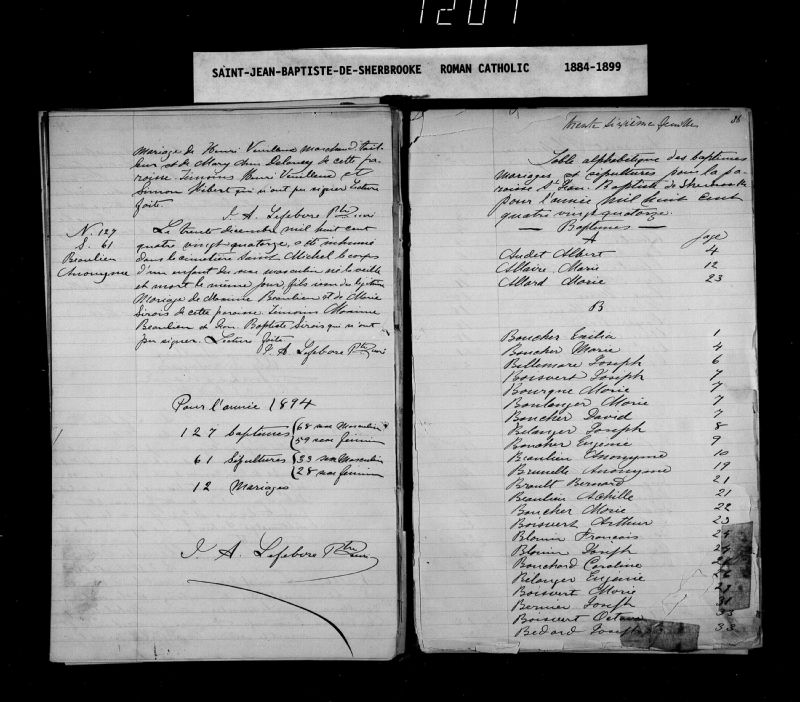 1207
SAINT-JEAN-BAPTISTE-DE-SHERBROOKE ROMAN CATHOLIC 1884-1899
mariage de Henri Veilleux marchand tail-
leur et de Mary Ann Delaney de cette pa-
roisse. Témoins Henri Veilleux et
Simon Hibert qui n'ont pu signer. Lecture
faite.
J. A. Lefebvre Ptre curé
N. 127
S. 61
Beaulieu
Anonyme
Le trente décembre mil huit cent
quatre vingt quatorze, a été inhumé
dans le cimetière Saint Michel le corps
d'un enfant du sexe masculin né la veille
et mort le même jour, fils né du légitime
Mariage de Maxime Beaulieu et de Marie
Sirois de cette paroisse. Témoins Maxime
Beaulieu et Jean Baptiste Sirois qui n'ont
pu signer. Lecture faite
J. A. Lefebvre Ptre curé
Pour l'année 1894
127 baptêmes 68 sexe Masculin
59 sexe féminin
61 Sépultures 33 sexe Masculin
28 sexe féminin
12 Mariages
J. A. Lefebvre Ptre curé
trente sixième feuille 36
Table alphabétique des baptêmes
mariages et sépultures pour la pa-
roisse St Jean Baptiste de Sherbrooke
pour l'année mil huit cent
quatre vingt quatorze.
— Baptêmes —
A page
Audet Albert 4
Allaire Marie 12
Allard Marie 23
B
Boucher Emilia 1
Boucher Marie 4
Bellemare Joseph 6
Boisvert Joseph 7
Bourque Marie 7
Boulanger Marie 7
Boucher David 7
Bélanger Joseph 8
Boucher Eugénie 9
Beaulieu Anonyme 10
Brunelle Anonyme 19
Brault Bernard 21
Beaulieu Achille 21
Boucher Marie 22
Boisvert Arthur 23
Blouin François
Blouin Joseph
Bouchard Caroline
Bélanger Eugénie
Boisvert Marie
Bernier Joseph
Boisvert Octave 33
Bédard Joseph 33